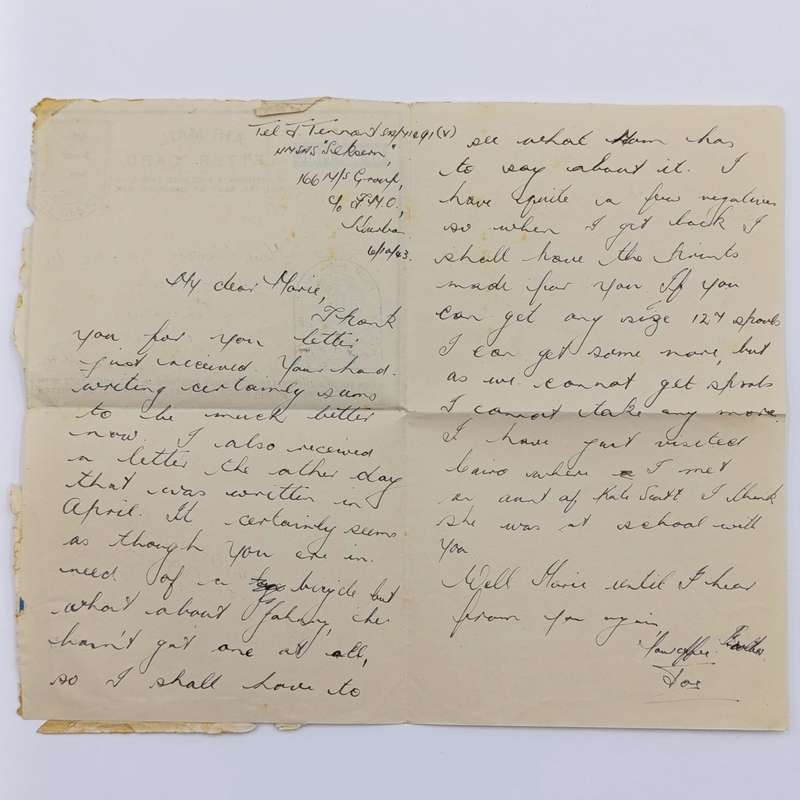 Tel J. Tennant
HMSAS "Seksern",
166 M/S Group,
c/o F.M.O.,
Durban.
6/10/43.
My dear Marie,
Thank
you for you letter
just received. Your hand-
writing certainly seems
to be much better
now. I also received
a letter the other day
that was written in
April. It certainly seems
as though you are in
need of a bicycle but
what about Johnny, he
hasn't got one at all,
so I shall have to
see what Mom has
to say about it. I
have quite a few negatives
so when I get back I
shall have the prints
made for you. If you
can get any size 127 spools
I can get some more, but
as we cannot get spools
I cannot take any more.
I have just visited
Cairo where I met
an aunt of Kate Scott I think
she was at school with
you
Well Marie until I hear
from you again,
Your affec. Brother
AIR MAIL
LETTER CARD